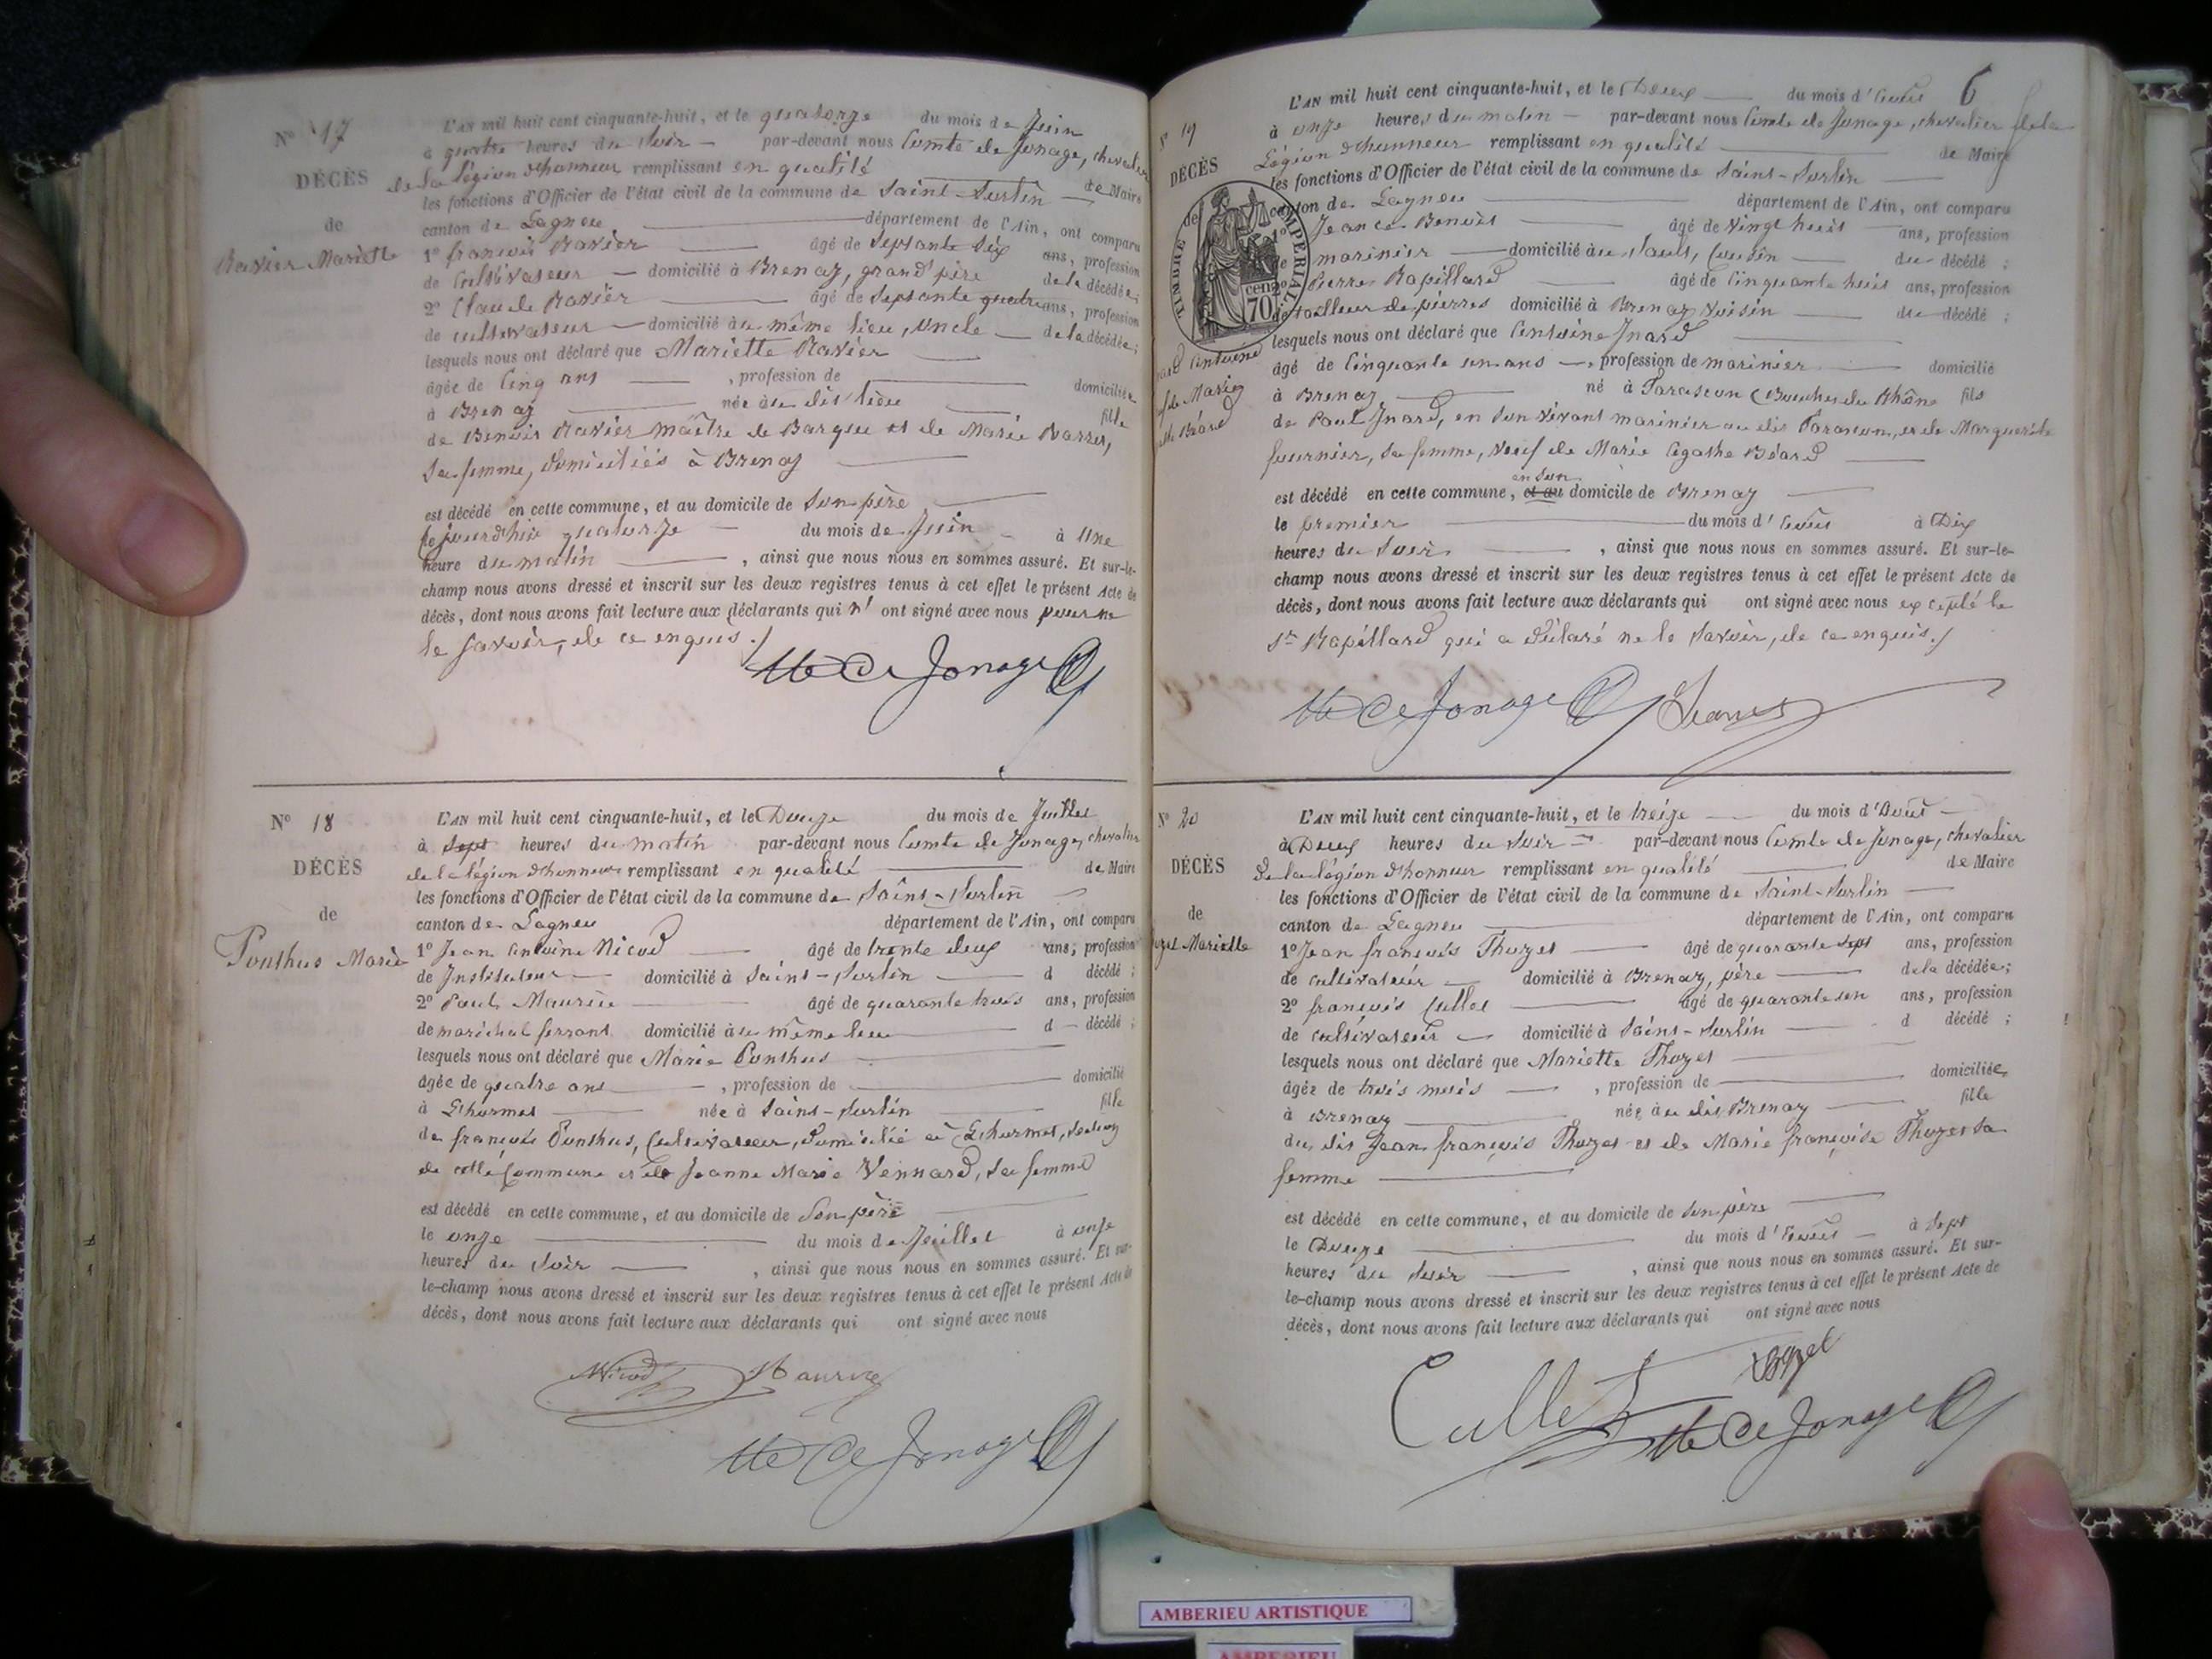 N° 17
DÉCÈS
de
Ravier Mariette
L'AN mil huit cent cinquante-huit, et le quatorze du mois de Juin
à quatre heures du soir par-devant nous Comte de Jonage, chevalier
de la légion d'honneur remplissant en qualité de Maire
les fonctions d'Officier de l'état civil de la commune de Saint-Sorlin
canton de Lagneu département de l'Ain, ont comparu
1° françois Ravier âgé de Septante Six ans, profession
de Cultivateur domicilié à Brenaz, grand'père de la décédée;
2° Claude Ravier âgé de Septante quatre ans, profession
de cultivateur domicilié au même lieu, oncle de la décédée;
lesquels nous ont déclaré que Mariette Ravier
âgée de Cinq ans , profession de domiciliée
à Brenaz née au dit lieu fille
de Benoit Ravier maître de Barque et de Marie
sa femme, domiciliés à Brenaz
est décédé en cette commune, et au domicile de Son père
Cejourd'hui quatorze du mois de Juin à Une
heure du matin , ainsi que nous nous en sommes assuré. Et sur-le-
champ nous avons dressé et inscrit sur les deux registres tenus à cet effet le présent Acte de
décès, dont nous avons fait lecture aux déclarants qui n' ont signé avec nous pour ne
le savoir, de ce enquis./
Cte De Jonage
N° 18
DÉCÈS
de
Ponthus Marie
L'AN mil huit cent cinquante-huit, et le Douze du mois de Juillet
à Sept heures du matin par-devant nous Comte de Jonage, chevalier
de la légion d'honneur remplissant en qualité de Maire
les fonctions d'Officier de l'état civil de la commune de Saint-Sorlin
canton de Lagneu département de l'Ain, ont comparu
1° Jean Antoine Nicod âgé de trente deux ans, profession
de Instituteur domicilié à Saint-Sorlin d décédé ;
2° Paul Maurin âgé de quarante trois ans, profession
de maréchal ferrant domicilié au même lieu d décédé ;
lesquels nous ont déclaré que Marie Ponthus
âgée de quatre ans , profession de domicilié
à née à Saint-Sorlin fille
de françois Ponthus, Cultivateur, Domicilié à
de cette Commune et de Jeanne Marie Vennard, sa femme
est décédé en cette commune, et au domicile de Son père
le onze du mois de Juillet à onze
heures du Soir , ainsi que nous nous en sommes assuré. Et sur-
le-champ nous avons dressé et inscrit sur les deux registres tenus à cet effet le présent Acte de
décès, dont nous avons fait lecture aux déclarants qui ont signé avec nous
Nicod Maurin
Cte De Jonage
6
N° 19
DÉCÈS
de
Antoine
TIMBRE IMPÉRIAL
70 cent
L'AN mil huit cent cinquante-huit, et le Deux du mois d'Août
à onze heures du matin par-devant nous Comte de Jonage, chevalier de la
Légion d'honneur remplissant en qualité de Maire
les fonctions d'Officier de l'état civil de la commune de Saint-Sorlin
canton de Lagneu département de l'Ain, ont comparu
1° Benoit âgé de Vingt huit ans, profession
de marinier domicilié au Sault, Cousin du décédé ;
2° Pierre Rapillard âgé de Cinquante huit ans, profession
de tailleur de pierres domicilié à Brenaz Voisin du décédé ;
lesquels nous ont déclaré que Antoine Inard
âgé de Cinquante un ans , profession de marinier domicilié
à Brenaz né à Tarascon (Bouches du Rhône fils
de Paul Inard, en son vivant marinier au dit Tarascon, et de Marguerite
fournier, sa femme, veuf de Marie Agathe Béard
est décédé en cette commune, et au en son domicile de Brenaz
le premier du mois d'Août à Dix
heures du Soir , ainsi que nous nous en sommes assuré. Et sur-le-
champ nous avons dressé et inscrit sur les deux registres tenus à cet effet le présent Acte de
décès, dont nous avons fait lecture aux déclarants qui ont signé avec nous excepté le
Sr Rapillard qui a déclaré ne le savoir, de ce enquis./
Cte De Jonage
N° 20
DÉCÈS
de
Mariette
L'AN mil huit cent cinquante-huit, et le treize du mois d'Août
à Deux heures du Soir par-devant nous Comte de Jonage, chevalier
de la légion d'honneur remplissant en qualité de Maire
les fonctions d'Officier de l'état civil de la commune de Saint-Sorlin
canton de Lagneu département de l'Ain, ont comparu
1° Jean françois Thozet âgé de quarante sept ans, profession
de cultivateur domicilié à Brenaz, père de la décédée;
2° françois Cullet âgé de quarante un ans, profession
de cultivateur domicilié à Saint-Sorlin d décédé ;
lesquels nous ont déclaré que Mariette Thozet
âgée de trois mois , profession de domiciliée
à Brenaz née au dit Brenaz fille
du dit Jean françois Thozet et de Marie françoise Thozet sa
femme
est décédé en cette commune, et au domicile de son père
le Douze du mois d'Août à Sept
heures du Soir , ainsi que nous nous en sommes assuré. Et sur-
le-champ nous avons dressé et inscrit sur les deux registres tenus à cet effet le présent Acte de
décès, dont nous avons fait lecture aux déclarants qui ont signé avec nous
Cullet
Cte De Jonage
AMBERIEU ARTISTIQUE
AMBERIEU